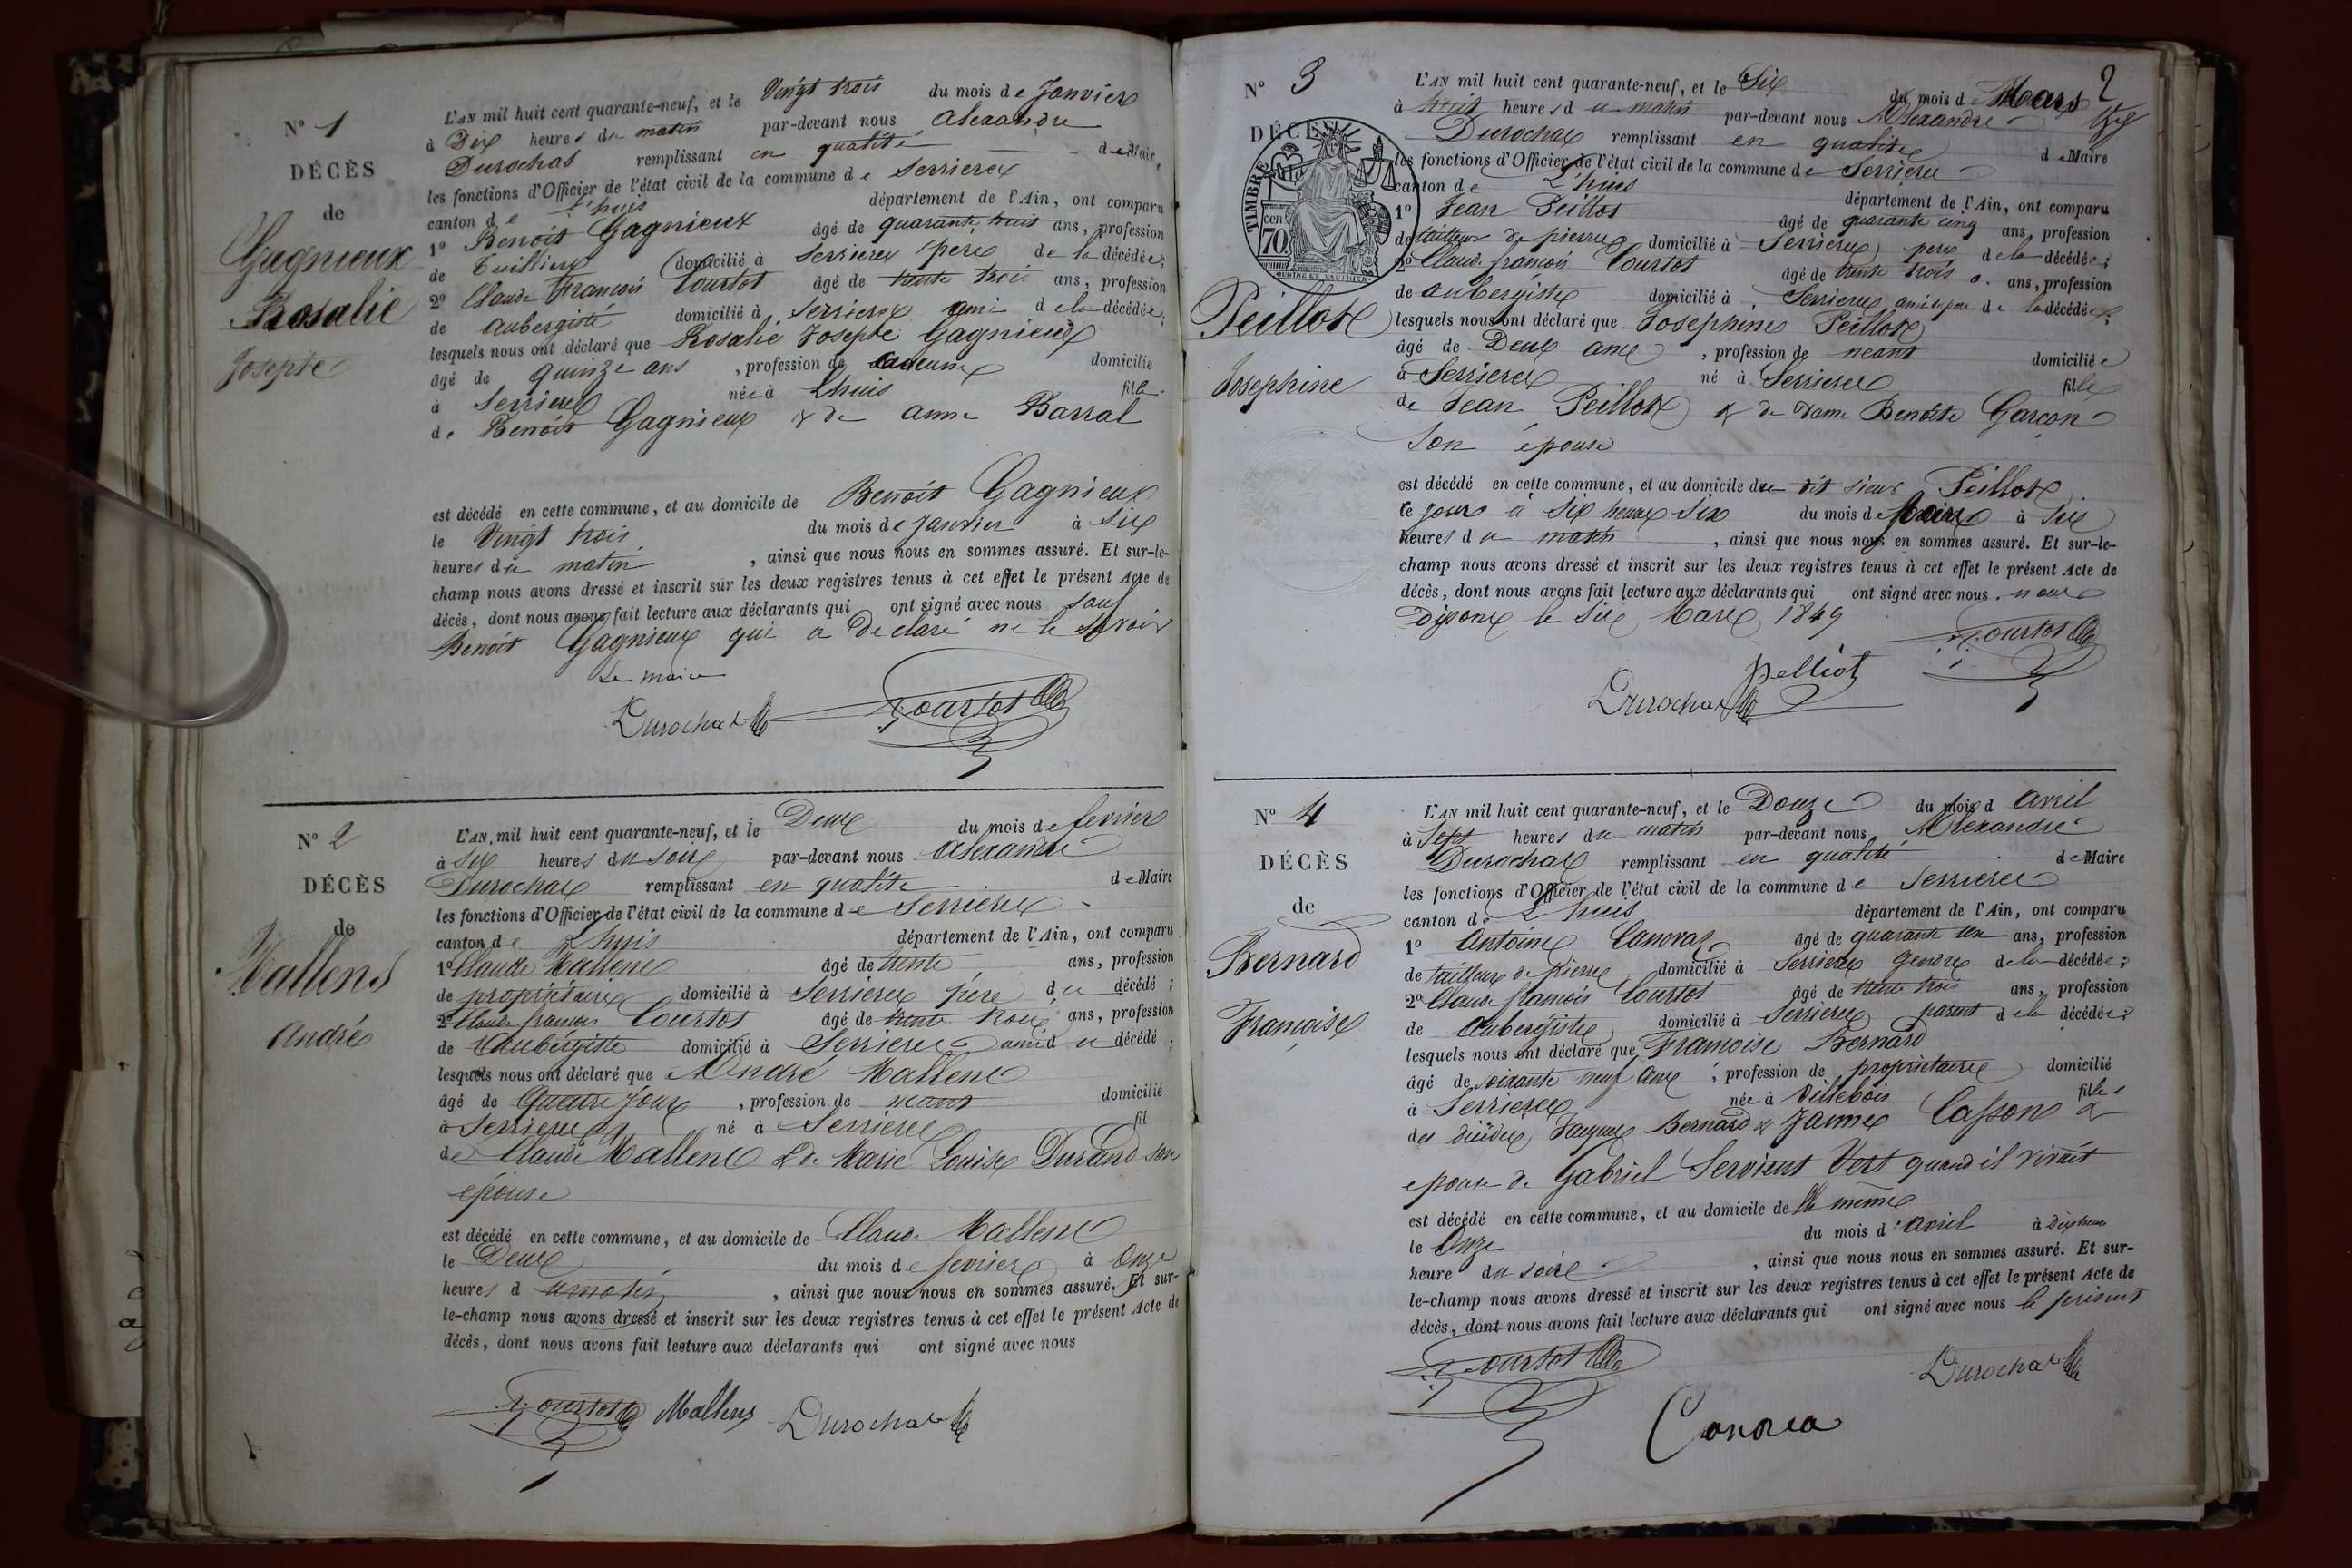 N° 1
DÉCÈS
de
Gagnieux
Rosalie
Josepte
L'AN mil huit cent quarante-neuf, et le Vingt trois du mois de Janvier
à Dix heures du matin par-devant nous Alexandre
Durochas remplissant en qualité de Maire
les fonctions d'Officier de l'état civil de la commune de Serrieres
canton de Lhuis département de l'Ain, ont comparu
1° Benoit Gagnieux âgé de quarante huit ans, profession
de domicilié à Serrieres pere de la décédée;
2° Claude François Courtot âgé de trente trois ans, profession
de aubergiste domicilié à Serrieres ami de la décédée;
lesquels nous ont déclaré que Rosalie Josepte Gagnieux
âgé de quinze ans, profession de aucune domicilié
à Serrieres née à Lhuis fille
de Benoit Gagnieux & de anne Barral
est décédé en cette commune, et au domicile de Benoit Gagnieux
le Vingt trois du mois de Janvier à six
heures du matin, ainsi que nous nous en sommes assuré. Et sur-le-
champ nous avons dressé et inscrit sur les deux registres tenus à cet effet le présent Acte de
décès, dont nous avons fait lecture aux déclarants qui ont signé avec nous sauf
Benoit Gagnieux qui a declaré ne le savoir
Le maire
Durochat Courtot
N° 2
DÉCÈS
de
Mallens
André
L'AN mil huit cent quarante-neuf, et le Deux du mois de fevrier
à six heures du soir par-devant nous Alexandre
Durochas remplissant en qualité de Maire
les fonctions d'Officier de l'état civil de la commune de Serrieres
canton de Lhuis département de l'Ain, ont comparu
1° Claude Mallens âgé de trente ans, profession
de propriétaire domicilié à Serrieres père du décédé;
2° Claude françois Courtot âgé de trente trois ans, profession
de Aubergiste domicilié à Serrieres ami du décédé;
lesquels nous ont déclaré que André Mallens
âgé de Quatre jours, profession de neant domicilié
à Serrieres né à Serrieres fil
de Claude Mallens & de Marie Louise Durand son
épouse
est décédé en cette commune, et au domicile de Claude Mallens
le Deux du mois de fevrier à Onze
heures du matin, ainsi que nous nous en sommes assuré. Et sur-
le-champ nous avons dressé et inscrit sur les deux registres tenus à cet effet le présent Acte de
décès, dont nous avons fait lecture aux déclarants qui ont signé avec nous
Courtot Mallens Durochat
2
N° 3
DÉCÈS
TIMBRE
cen 70
Peillot
Josephine
L'AN mil huit cent quarante-neuf, et le Six du mois de Mars
à huit heures du matin par-devant nous Alexandre
Durochas remplissant en qualité de Maire
les fonctions d'Officier de l'état civil de la commune de Serrieres
canton de Lhuis département de l'Ain, ont comparu
1° Jean Peillot âgé de quarante cinq ans, profession
de tailleur de pierres domicilié à Serrieres pere de la décédée;
2° Claude françois Courtot âgé de trente trois ans, profession
de aubergiste domicilié à Serrieres ami de la décédée;
lesquels nous ont déclaré que Josephine Peillot
âgé de Deux ans, profession de neant domiciliée
à Serrieres né à Serrieres fille
de Jean Peillot & de Dame Benoite Garçon
son épouse
est décédé en cette commune, et au domicile du dit sieur Peillot
le jour à six heures Six du mois de Mars à Six
heures du matin, ainsi que nous nous en sommes assuré. Et sur-le-
champ nous avons dressé et inscrit sur les deux registres tenus à cet effet le présent Acte de
décès, dont nous avons fait lecture aux déclarants qui ont signé avec nous. nous
Disons le Six Mars 1849
Courtot
Pelliot
Durochat
N° 4
DÉCÈS
de
Bernard
Françoise
L'AN mil huit cent quarante-neuf, et le Douze du mois d avril
à Sept heures du matin par-devant nous Alexandre
Durochas remplissant en qualité de Maire
les fonctions d'Officier de l'état civil de la commune de Serrieres
canton de Lhuis département de l'Ain, ont comparu
1° Antoine Canoraz âgé de quarante un ans, profession
de tailleur de pierres domicilié à Serrieres gendre de la décédée;
2° Claude françois Courtot âgé de trente trois ans, profession
de Aubergiste domicilié à Serrieres parent de la décédée;
lesquels nous ont déclaré que Françoise Bernard
âgé de soixante neuf ans, profession de propriétaire domicilié
à Serrieres née à Villebois fille
des Jacques Bernard & Janne Casson &
epouse de Gabriel Servient Vert quand il vivait
est décédé en cette commune, et au domicile de la même
le Onze du mois d'avril à Dix heure
heure du soir, ainsi que nous nous en sommes assuré. Et sur-
le-champ nous avons dressé et inscrit sur les deux registres tenus à cet effet le présent Acte de
décès, dont nous avons fait lecture aux déclarants qui ont signé avec nous le présent
Courtot Durochat
Canorea